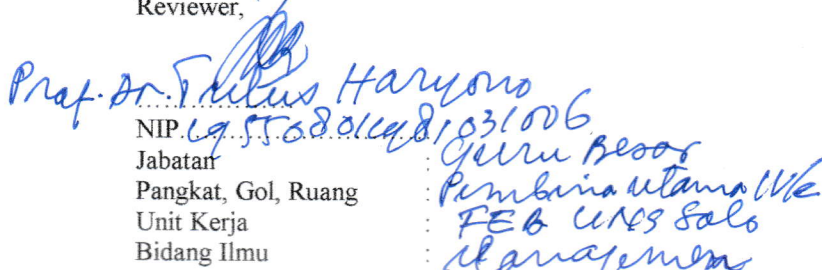 Reviewer,
Prof. Dr. Tulus Haryono
NIP 195508011981031006
Jabatan : Guru Besar
Pangkat, Gol, Ruang : Pembina Utama IV/e
Unit Kerja : FEB UNS Solo
Bidang Ilmu : Manajemen